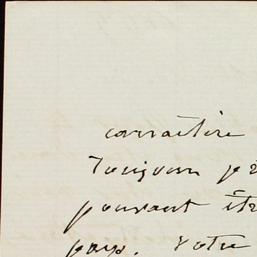 connaître
Toujours pr
pouvant êtr
pays. Votre